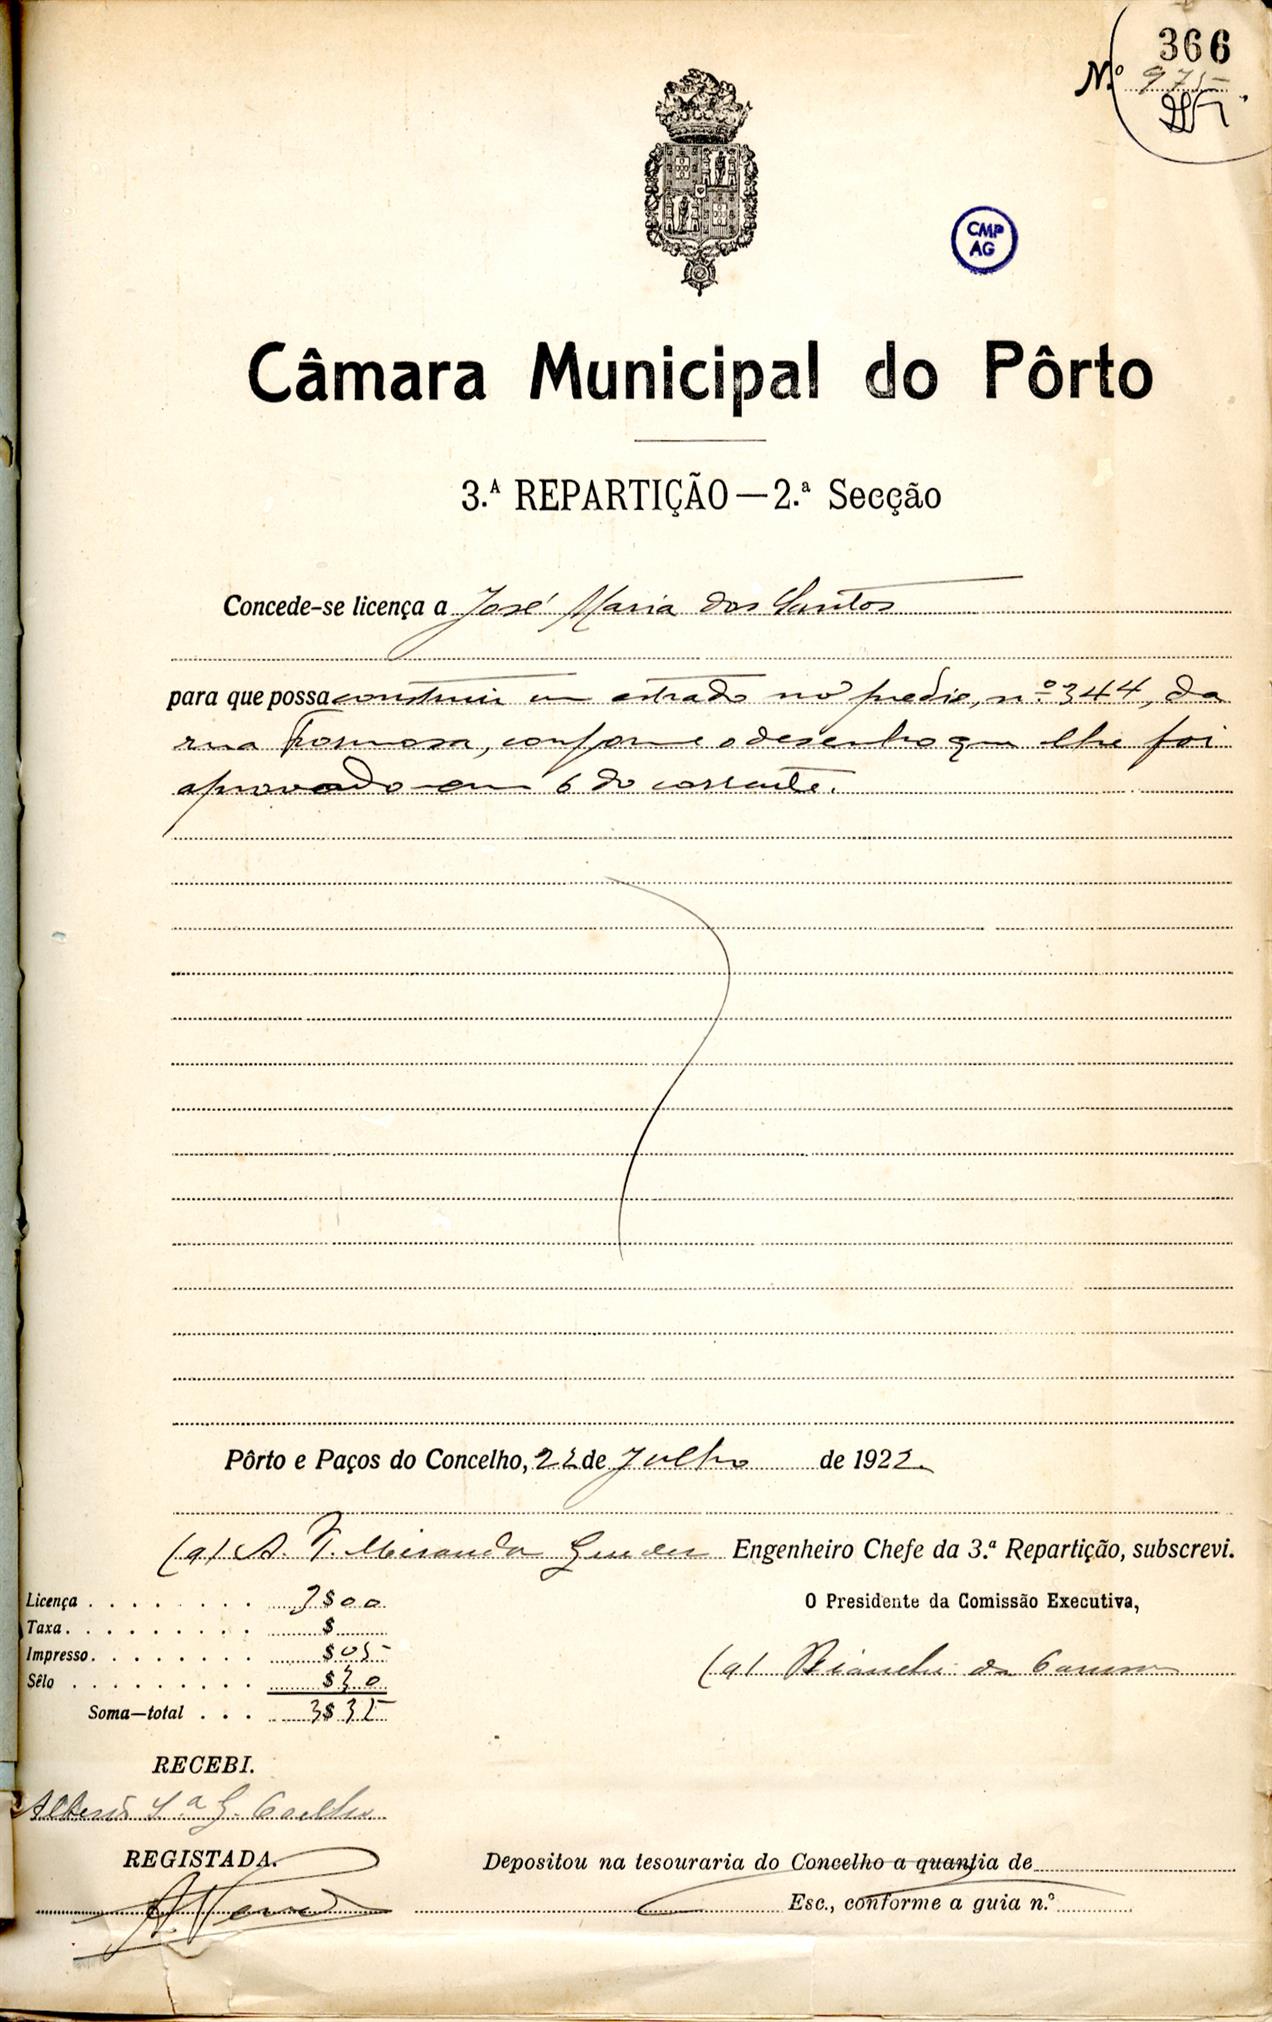 366
N.º 975
CMP
AG
Câmara Municipal do Pôrto
3.ª REPARTIÇÃO—2.ª Secção
Concede-se licença a José Maria dos Santos
para que possa construir um estrado no predio, nº 344, da
rua Formosa, conforme o desenho que lhe foi
aprovado em 6 do corrente.
Pôrto e Paços do Concelho, 22 de Julho de 1922.
(a) A. F. Miranda Guedes Engenheiro Chefe da 3.ª Repartição, subscrevi.
Licença . . . . . . . . 3$00
O Presidente da Comissão Executiva,
Taxa. . . . . . . . . $
Impresso. . . . . . . . $05
(a)
Sêlo . . . . . . . . . $30
Soma—total . . . 3$35
RECEBI.
Coelho
REGISTADA.
Depositou na tesouraria do Concelho a quantia de
Esc., conforme a guia n.º